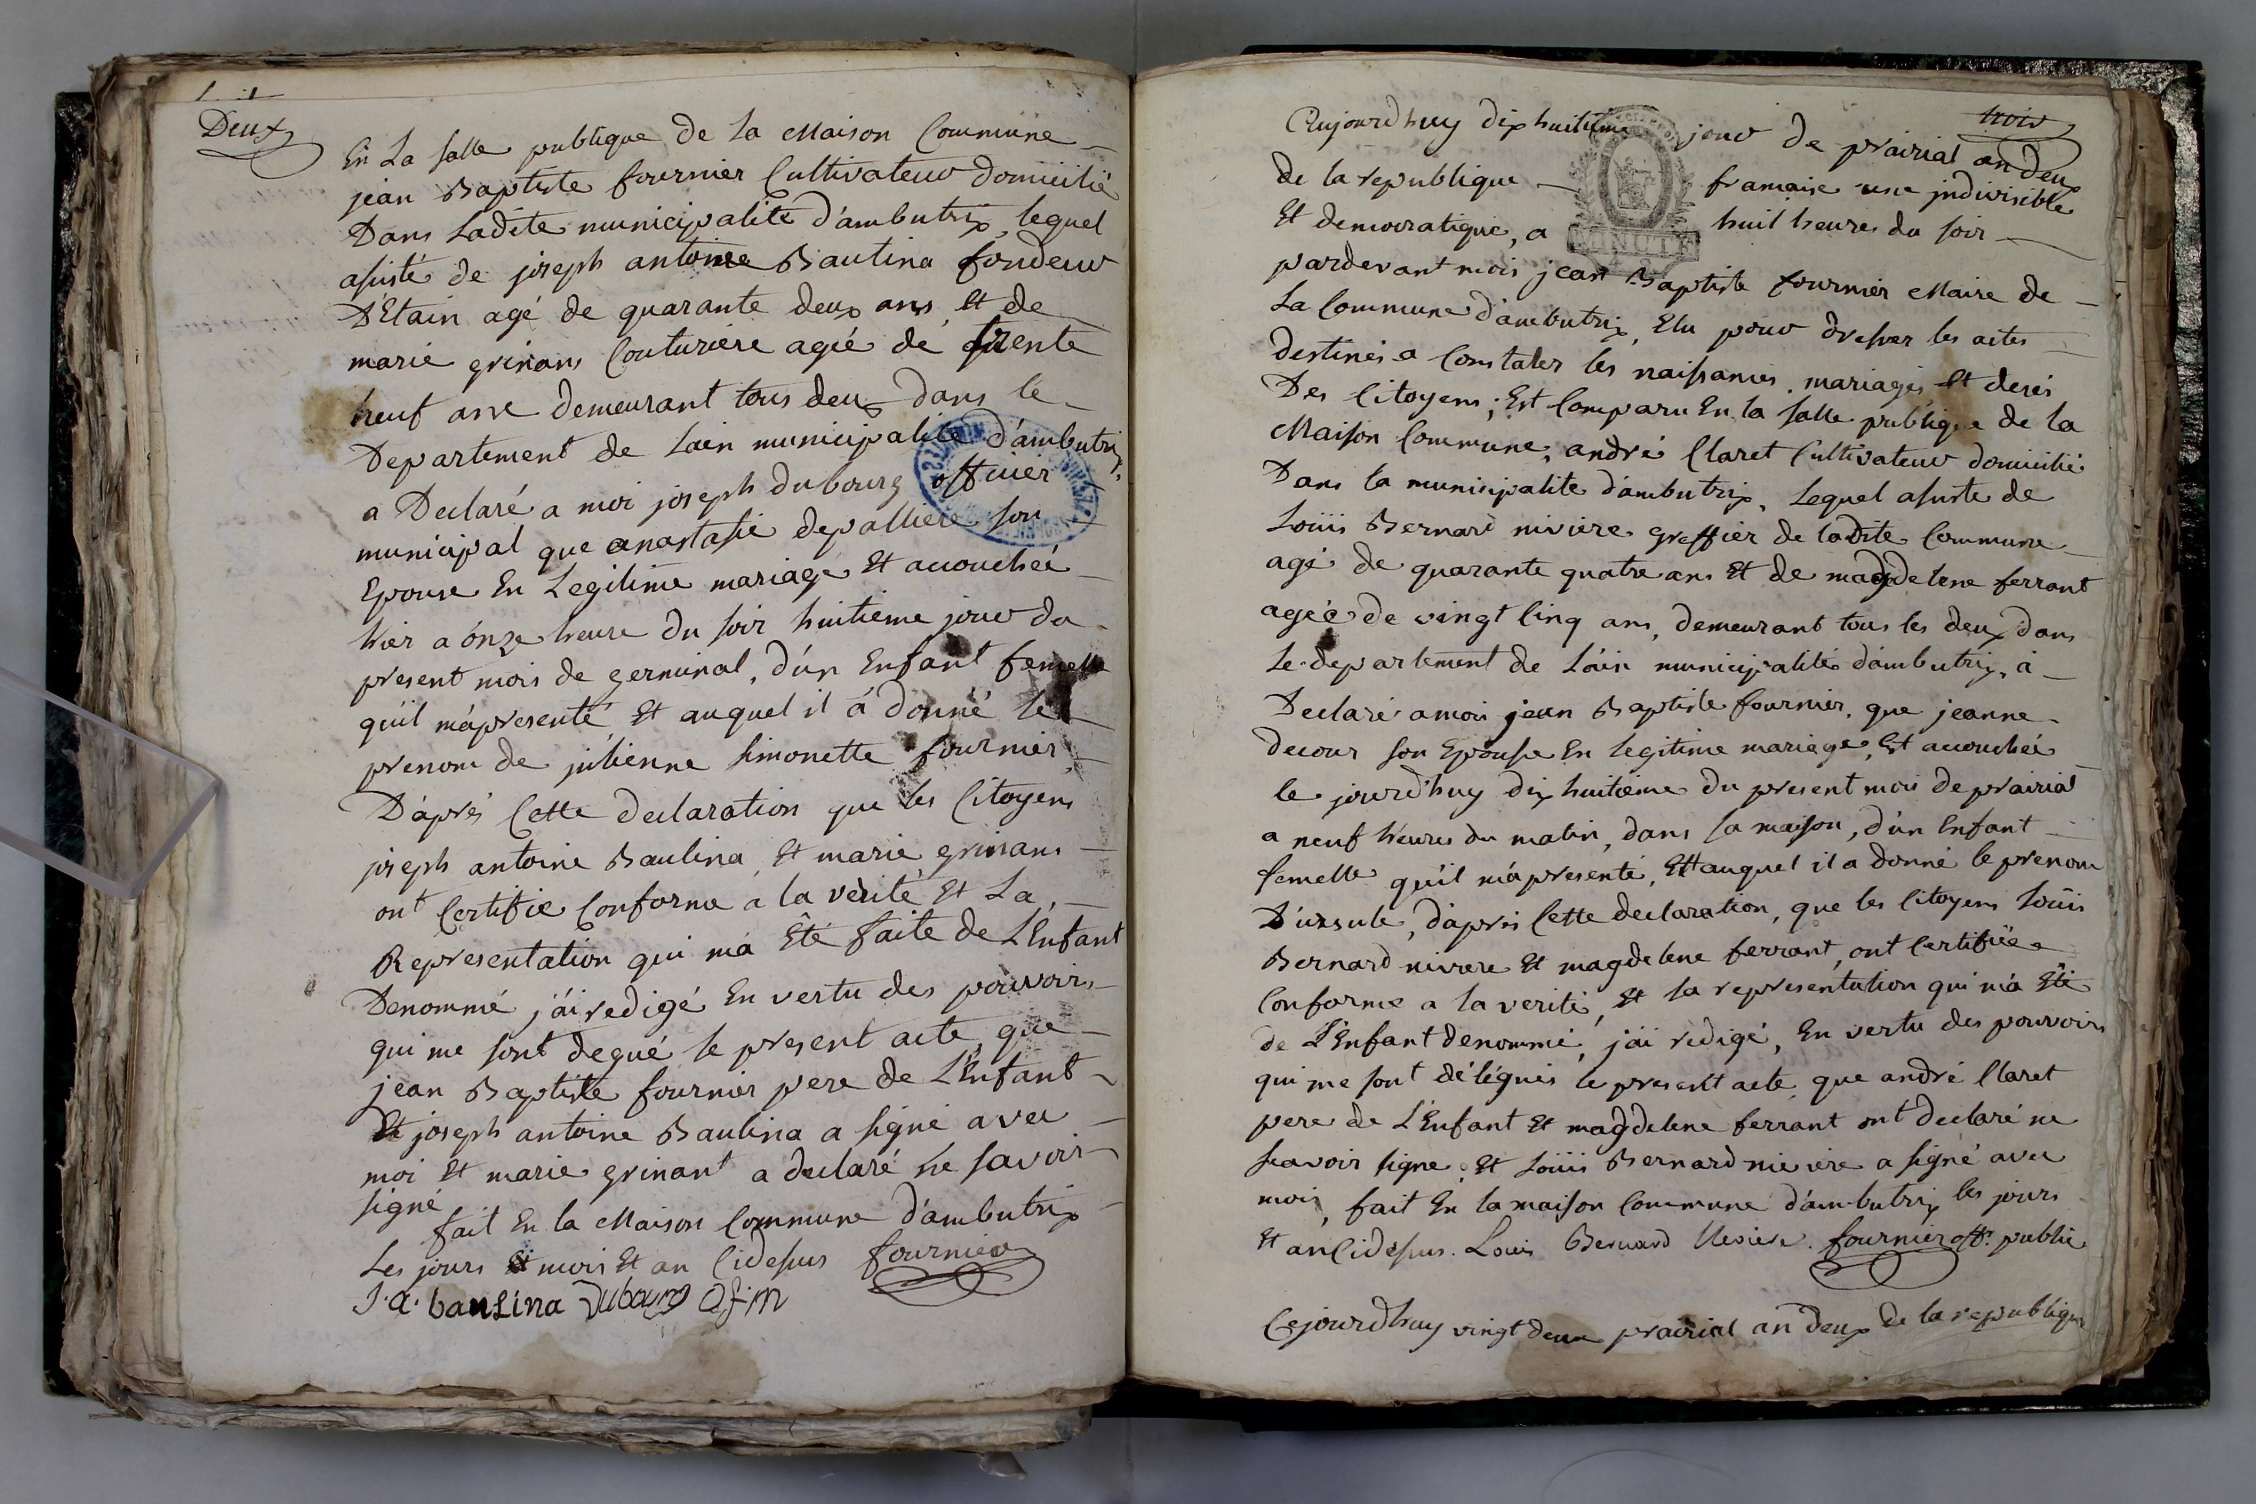 Deux
En La salle publique de la Maison Commune
jean Baptiste fournier Cultivateur domicilié
Dans Ladite municipalité d'ambutrix, lequel
assisté de joseph antoine Baulina fondeur
D'Etain agé de quarante deux ans, Et de
marie grinans Couturiere agée de trente
neuf ans demeurant tous deux dans le
Departement de Lain municipalité d'ambutrix
a Declaré a moi joseph dubourg officier
municipal que anastasie depalliere son
Epouse En Legitime mariage Et accouchée
hier a onze heure du soir huitieme jour du
present mois de germinal, d'un Enfant femelle
qu'il m'apresenté Et auquel il a donné le
prenom de julienne simonette fournier,
D'aprés Cette declaration que les Citoyens
joseph antoine Baulina, Et marie grinans
ont Certifie Conforme a la verité Et La
Representation qui ma Eté faite de L'Enfant
Denommé j'ai redigé En vertu des pouvoirs
qui me sont degué le present acte, que
jean Baptiste fournier pere de L'Enfant
Et joseph antoine Baulina a signé avec
moi Et marie grinant a declaré ne savoir
signé
fait En la Maison Commune d'ambutrix
Les jours Et mois Et an Cidessus fournier
J. a. bauLina Dubourg O f m
trois
Aujourdhuy dix huitieme jour de prairial an deux
de la republique francaise une jndivisible
Et democratique, a huit heures du soir
pardevant mois jean Baptiste fournier Maire de
La Commune d'ambutrix, Elu pour dresser les actes
destinés a Constater les naissances, mariages Et decés
Des Citoyens; Est Comparu En la salle publique de la
Maison Commune, andré Claret Cultivateur domicilié
Dans la municipalite d'ambutrix, Lequel assiste de
Louis Bernard niviere greffier de ladite Commune
agé de quarante quatre ans Et de magdelene ferrant
agée de vingt Cinq ans, demeurant tous les deux dans
Le departement de Lain municipalité d'ambutrix, à
Declaré a mois jean Baptiste fournier, que jeanne
decour son Epouse En legitime mariage, Et accouchée
le jourd'huy dix huitieme du present mois de prairial
a neuf heures du matin, dans sa maison, d'un Enfant
femelle qu'il m'apresenté, Et auquel il a donné le prenom
D'ursule, d'aprés Cette declaration, que les Citoyens Louis
Bernard niviere Et magdelene ferrant, ont Certifiée
Conforme a la verité, Et la representation qui m'a Eté
de L'Enfant denommé, j'ai redigé, En vertu des pouvoirs
qui me sont délégués le present acte, que andré Claret
pere de L'Enfant Et magdelene ferrant ont declaré ne
scavoir signe, Et Louis Bernard niviere a signé avec
mois, fait En la maison Commune d'ambutrix les jours
Et an Cidessus. Louis Bernard Niviere. fournier off. public
Cejourdhuy vingt deux prairial an deux de la republique